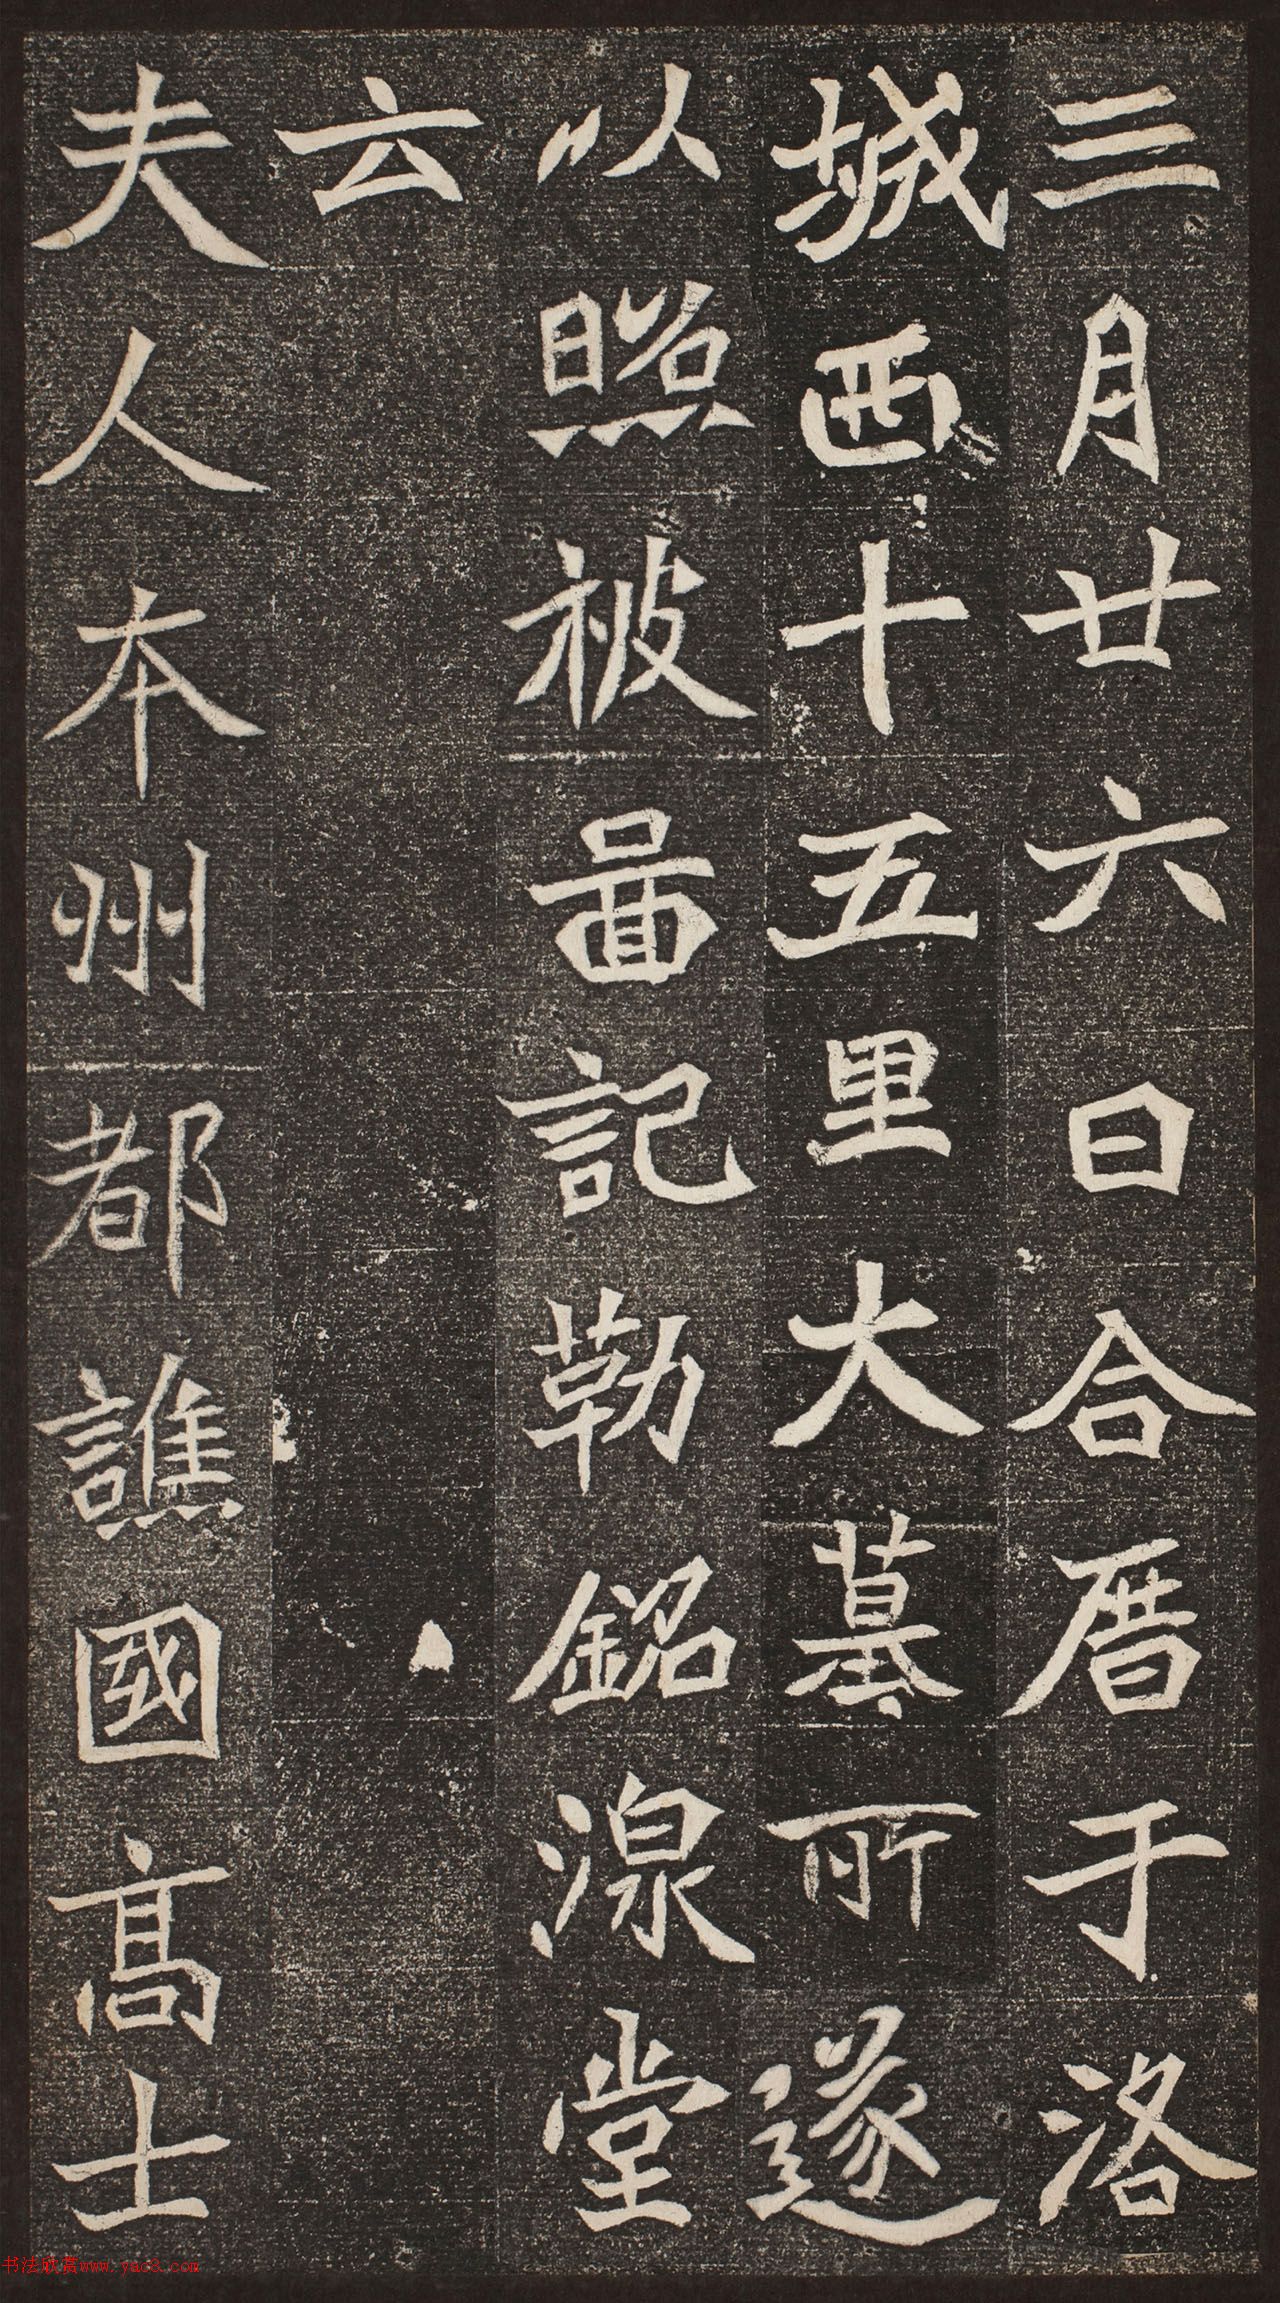 三月廿六日合厝于洛
城西十五里大墓所遂
以照被啚記勒銘湶堂
云
夫人本州都譙國高士
书法欣赏www.yac8.com